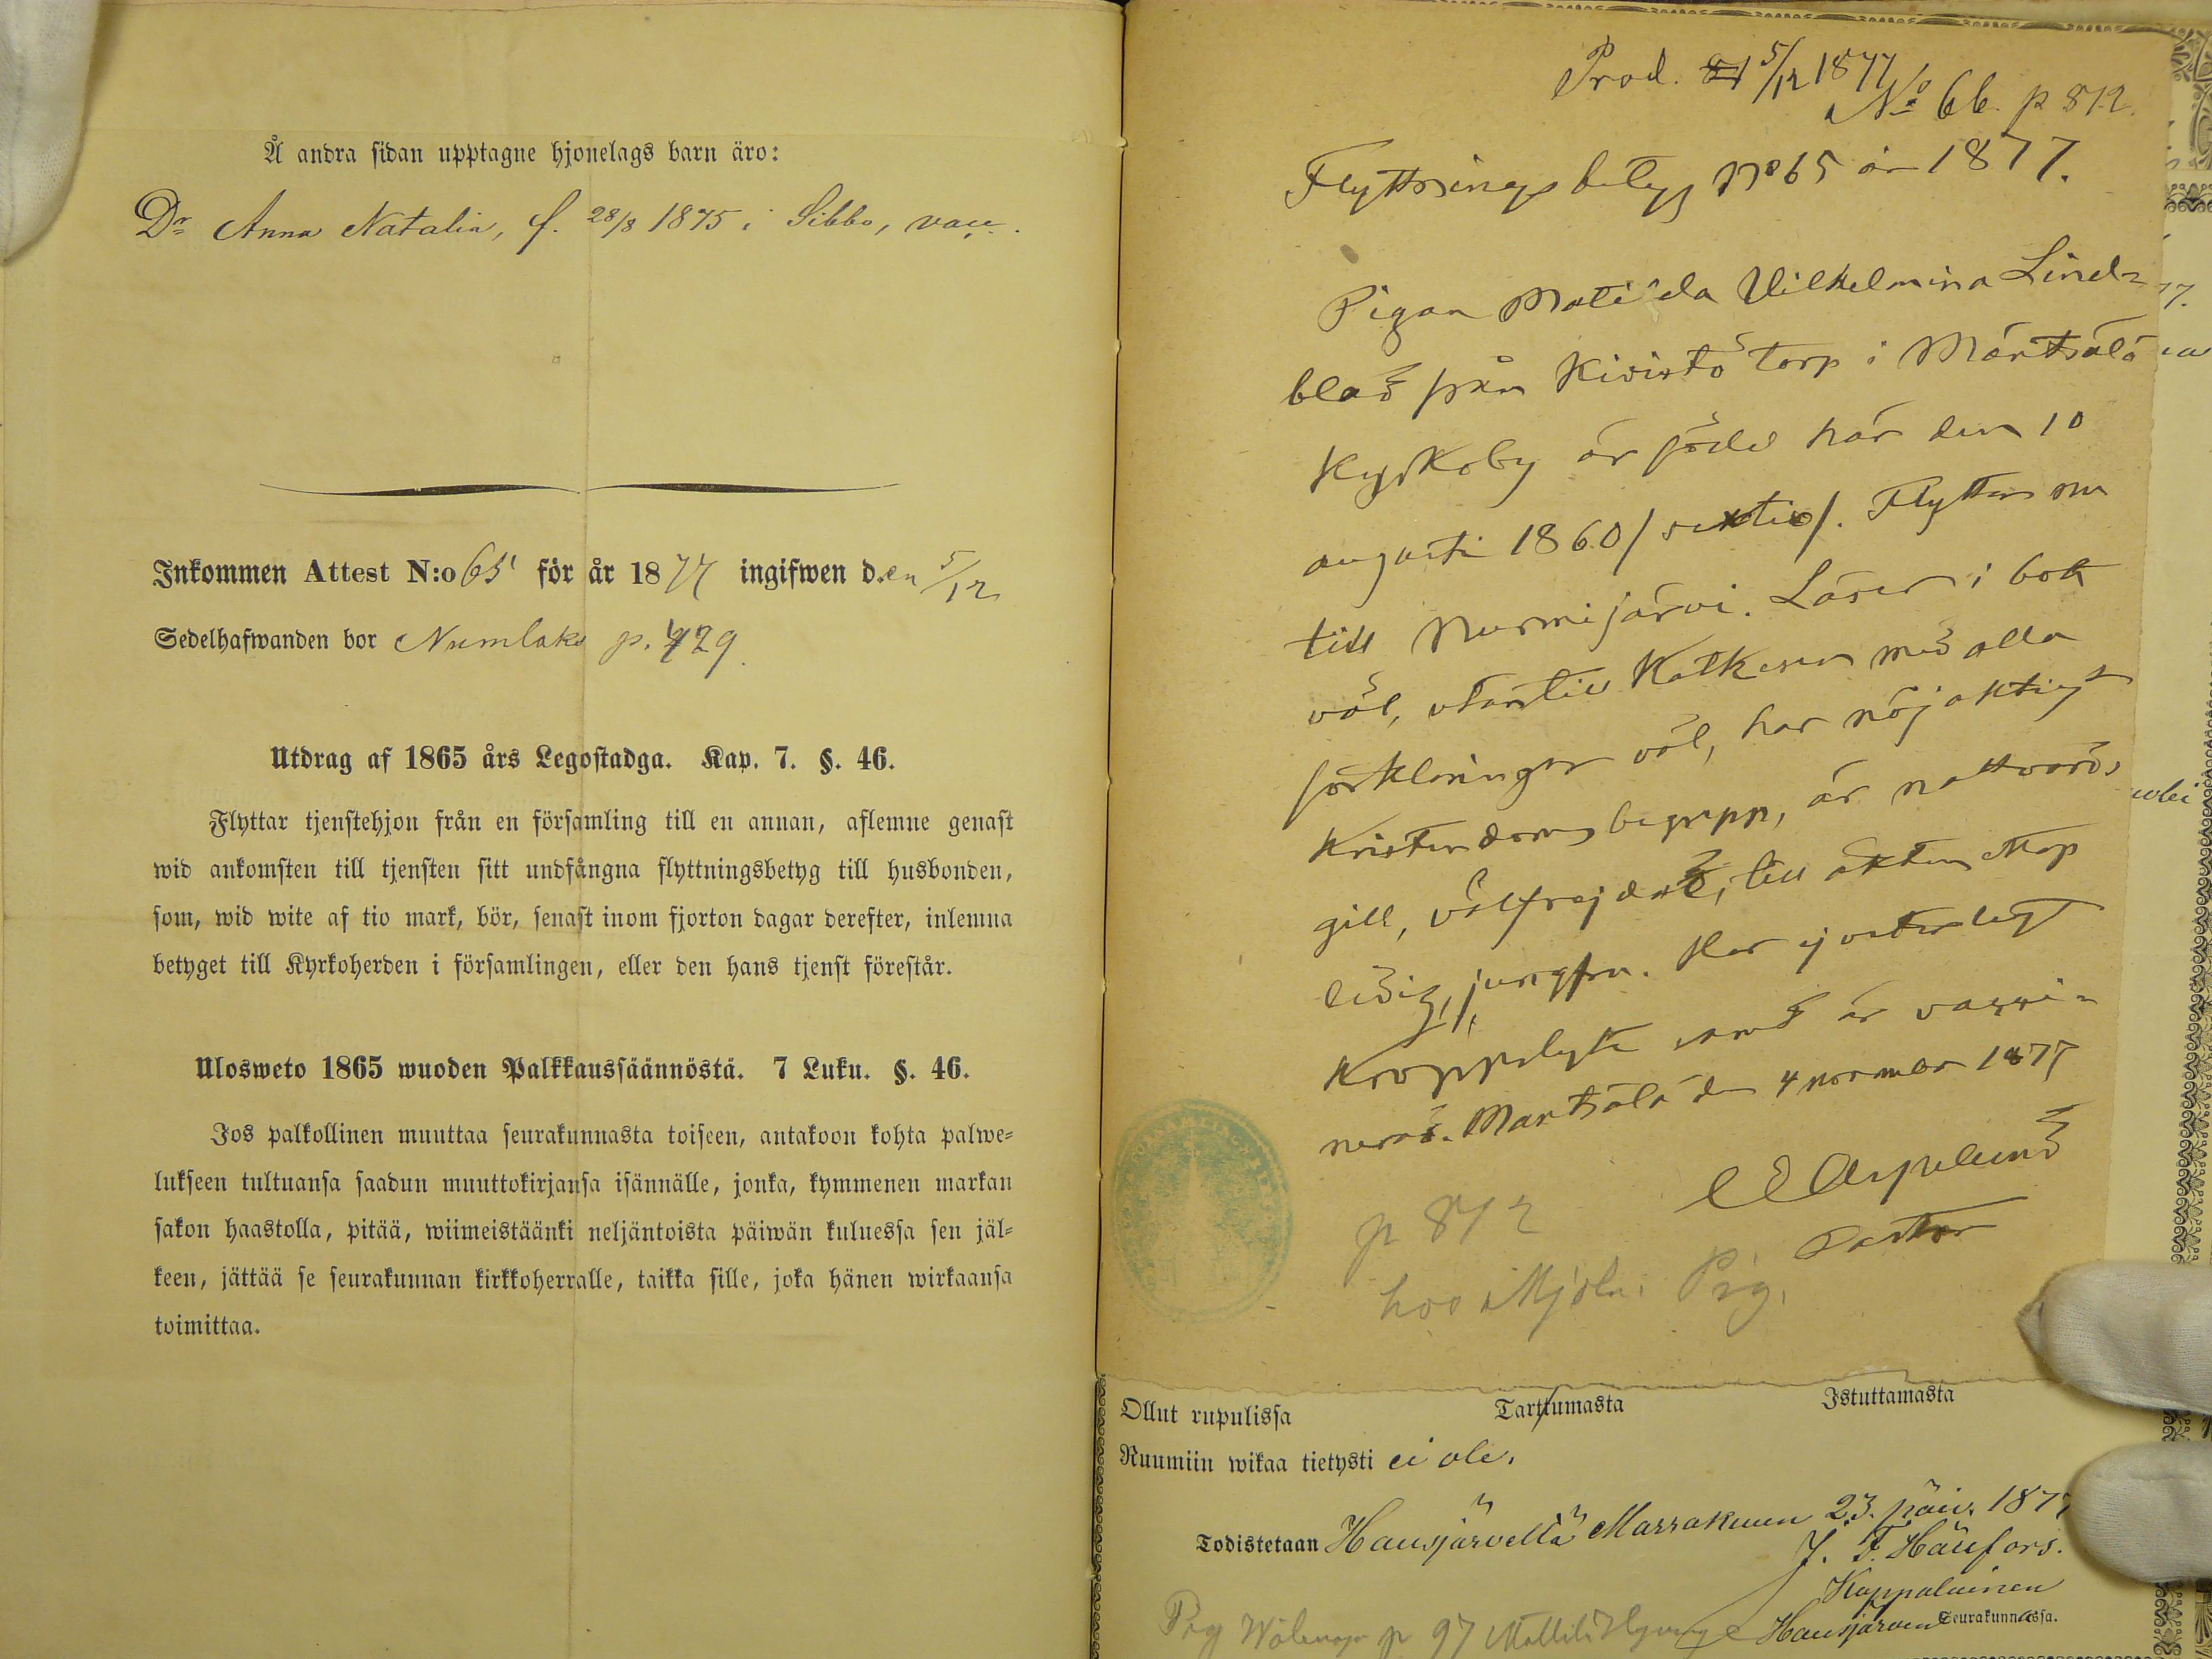 Å andra sidan upptagne hjonelags barn äro:
Dr Anna Natalia, f. 28/8 1875 i Sibbo, vacc.
Inkommen Attest N:o 65 för år 1877 ingifwen den 5/12
Sedelhafwanden bor Numlaks p. 429.
Utdrag af 1865 års Legostadga. Kap. 7. §. 46.
Flyttar tjenstehjon från en församling till en annan, aflemne genast
wid ankomsten till tjensten sitt undfångna flyttningsbetyg till husbonden,
som, wid wite af tio mark, bör, senast inom fjorton dagar derefter, inlemna
betyget till Kyrkoherden i församlingen, eller den hans tjenst förestår.
Ulosweto 1865 wuoden Palkkaussäännöstä. 7 Luku. §. 46.
Jos palkollinen muuttaa seurakunnasta toiseen, antakoon kohta palwe-
lukseen tultuansa saadun muuttokirjansa isännälle, jonka, kymmenen markan
sakon haastolla, pitää, wiimeistäänki neljäntoista päiwän kuluessa sen jäl-
keen, jättää se seurakunnan kirkkoherralle, taikka sille, joka hänen wirkaansa
toimittaa.
Prod. 5/12 1877
No 66. p 812.
Flyttningsbetyg No 65 år 1877.
Pigan Matilda Vilhelmina Lind-
blad från Kivistö torp i Mäntsälä
Kyrkoby är född här den 10
augusti 1860 /sextio/. Flyttar nu
till Nurmijärvi. Läser i bok
väl, utantill Katkesen med alla
förklaringar väl, har nöjaktigt
Kristendoms begrepp, är nattvards
gill, välfrejdad, till äkten skap
ledig, jungfru. Har ej veterligt
Kroppslyte samt är vacci-
nerad. Mäntsälä den 4 novmber 1877
C E Aspelund
Pastor
p 812
hos Mjöln. Pig.
Ollut rupulissa Tarttumasta Istuttamasta
Ruumiin wikaa tietysti ei ole.
Todistetaan Hausjärvellä Marrakuun 23. päiv. 1877
J. F. Häufors.
Kappalainen
Hausjärven Seurakunnassa.
Pig p 97